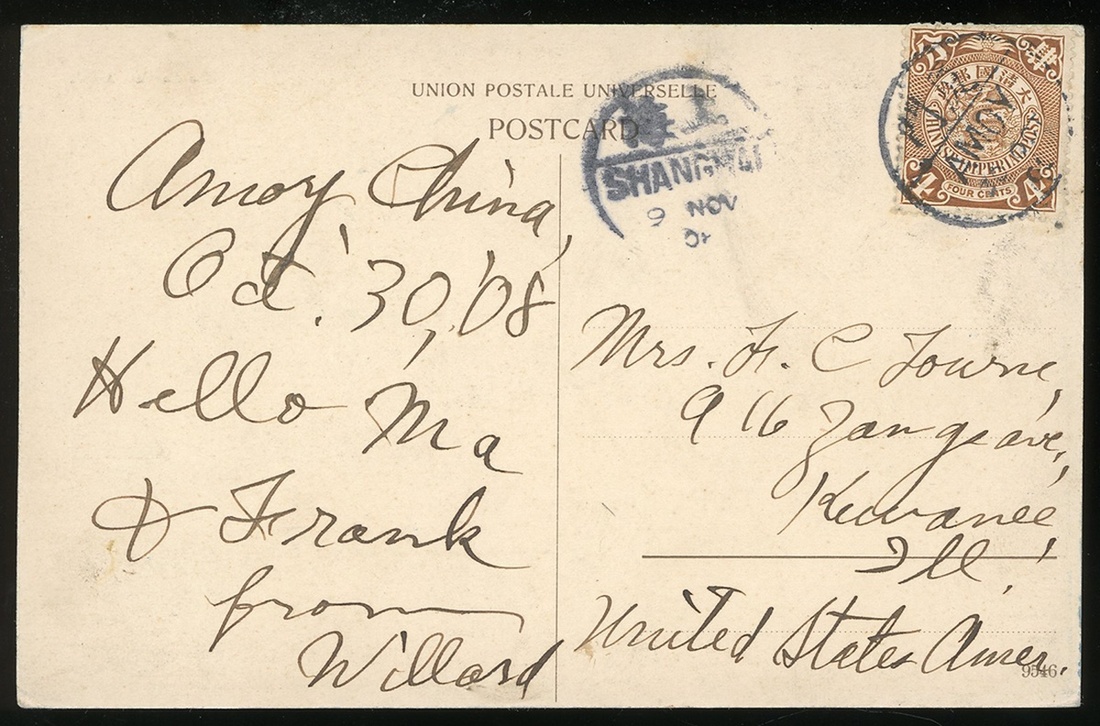 UNION POSTALE UNIVERSELLE
POSTCARD
SHANGHAI
9 NOV
大清國郵政
CHINESE IMPERIAL POST
FOUR CENTS
4 4
AMOY
Amoy China,
Oct. 30, '08
Hello Ma
& Frank
from
Willard
Mrs. F. C Towne,
916 Zang ave,
Kewanee,
Ill,
United States Amer.
9546